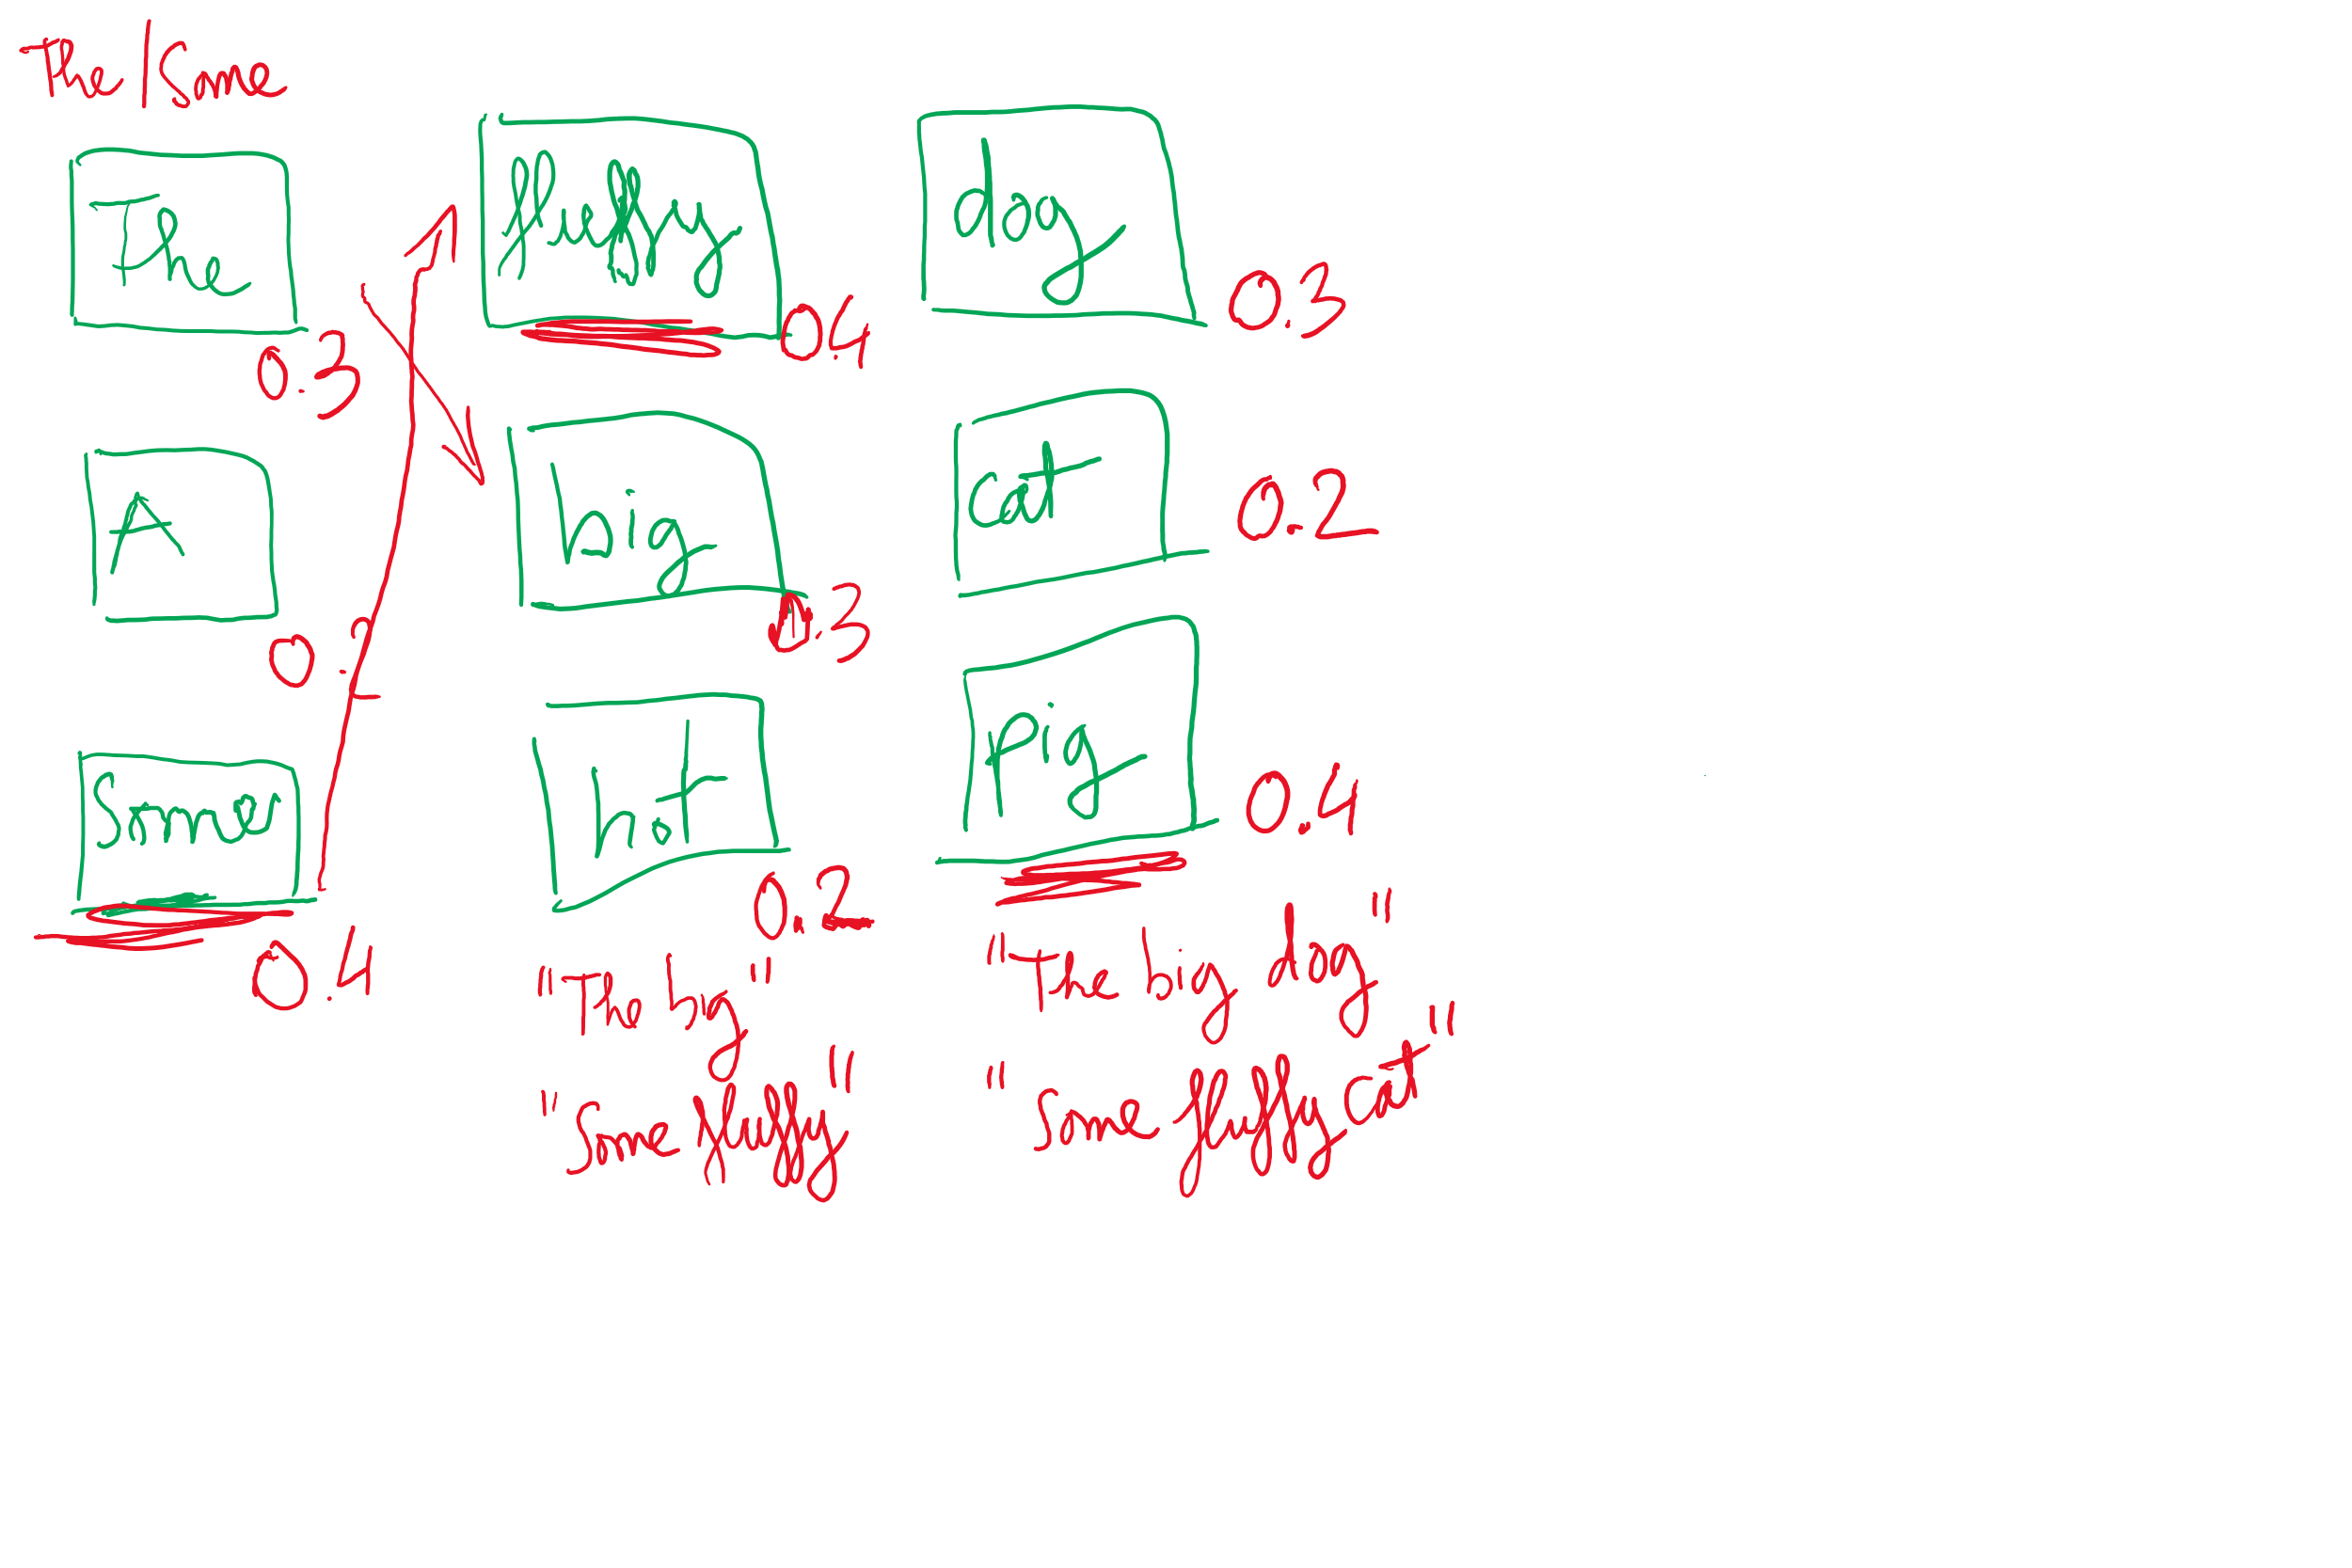 The / Some
The
0.3
A
0.2
Some
0.4
fluffy
0.4
big
0.3
hot
0.2
"The big"
"Some fluffy"
dog
0.3
cat
0.2
pig
0.4
"The big dog"
"Some fluffy cat"